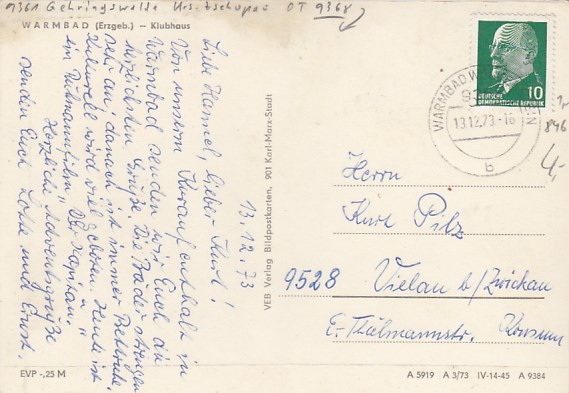 9361 Gehringswalde Krs. Zschopau OT 9368
WARMBAD (Erzgeb.) – Klubhaus
13.12.73
Liebe Hannel, lieber Kurt!
Von unserm Kuraufenthalt in
Warmbad senden wir Euch die
herzlichsten Grüße. Die Bäder strengen
sehr an, danach ist immer Bettruhe.
Kulturell wird viel geboren. Heute ist
ein Rühmannfilm „Der Kapitän."
Herzliche Adventsgrüße
senden Euch Lotte und Ernst.
VEB Verlag Bildpostkarten, 901 Karl-Marx-Stadt
10
DEUTSCHE
DEMOKRATISCHE REPUBLIK
WARMBAD
13.12.73.-16
b
846
4,-
Herrn
Kurt Pilz
9528 Vielau b/Zwickau
E.-Thälmannstr. Konsum
EVP -,25 M
A 5919 A 3/73 IV-14-45 A 9384